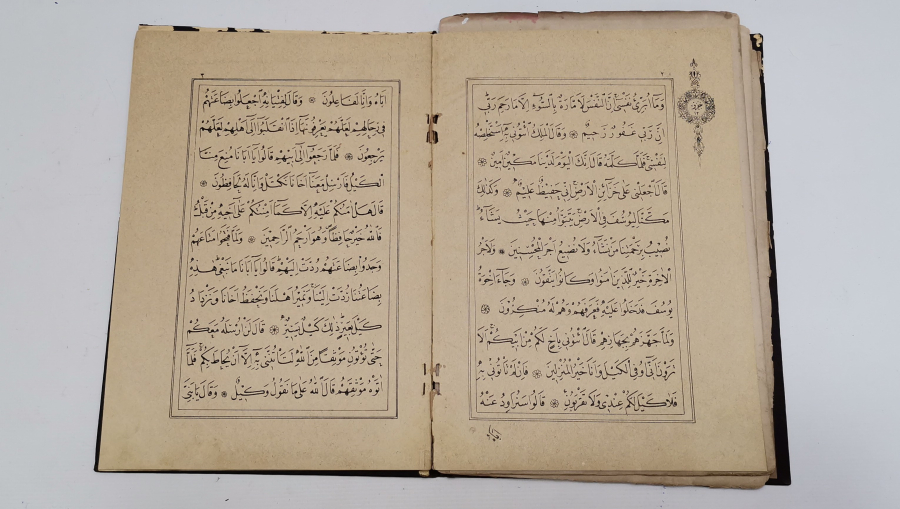 وَمَا اُبَرِّئُ نَفْسٖى اِنَّ النَّفْسَ لَاَمَّارَةٌ بِالسُّوءِ اِلَّا مَا رَحِمَ رَبّٖى
اِنَّ رَبّٖى غَفُورٌ رَحٖيمٌ ۞ وَقَالَ الْمَلِكُ ائْتُونٖى بِهٖ اَسْتَخْلِصْهُ
لِنَفْسٖى فَلَمَّا كَلَّمَهُ قَالَ اِنَّكَ الْيَوْمَ لَدَيْنَا مَكٖينٌ اَمٖينٌ ۞
قَالَ اجْعَلْنٖى عَلٰى خَزَائِنِ الْاَرْضِ اِنّٖى حَفٖيظٌ عَلٖيمٌ ۞ وَكَذٰلِكَ
مَكَّنَّا لِيُوسُفَ فِى الْاَرْضِ يَتَبَوَّاُ مِنْهَا حَيْثُ يَشَاءُ
نُصٖيبُ بِرَحْمَتِنَا مَنْ نَشَاءُ وَلَا نُضٖيعُ اَجْرَ الْمُحْسِنٖينَ ۞ وَلَاَجْرُ
الْاٰخِرَةِ خَيْرٌ لِلَّذٖينَ اٰمَنُوا وَكَانُوا يَتَّقُونَ ۞ وَجَاءَ اِخْوَةُ
يُوسُفَ فَدَخَلُوا عَلَيْهِ فَعَرَفَهُمْ وَهُمْ لَهُ مُنْكِرُونَ ۞
وَلَمَّا جَهَّزَهُمْ بِجَهَازِهِمْ قَالَ ائْتُونٖى بِاَخٍ لَكُمْ مِنْ اَبٖيكُمْ اَلَا
تَرَوْنَ اَنّٖى اُوفِى الْكَيْلَ وَاَنَا خَيْرُ الْمُنْزِلٖينَ ۞ فَاِنْ لَمْ تَاْتُونٖى بِهٖ
فَلَا كَيْلَ لَكُمْ عِنْدٖى وَلَا تَقْرَبُونِ ۞ قَالُوا سَنُرَاوِدُ عَنْهُ
اَبَاهُ
اَبَاهُ وَاِنَّا لَفَاعِلُونَ ۞ وَقَالَ لِفِتْيَانِهِ اجْعَلُوا بِضَاعَتَهُمْ
فٖى رِحَالِهِمْ لَعَلَّهُمْ يَعْرِفُونَهَا اِذَا انْقَلَبُوا اِلٰى اَهْلِهِمْ لَعَلَّهُمْ
يَرْجِعُونَ ۞ فَلَمَّا رَجَعُوا اِلٰى اَبٖيهِمْ قَالُوا يَا اَبَانَا مُنِعَ مِنَّا
الْكَيْلُ فَاَرْسِلْ مَعَنَا اَخَانَا نَكْتَلْ وَاِنَّا لَهُ لَحَافِظُونَ ۞
قَالَ هَلْ اٰمَنُكُمْ عَلَيْهِ اِلَّا كَمَا اَمِنْتُكُمْ عَلٰى اَخٖيهِ مِنْ قَبْلُ
فَاللّٰهُ خَيْرٌ حَافِظًا وَهُوَ اَرْحَمُ الرَّاحِمٖينَ ۞ وَلَمَّا فَتَحُوا مَتَاعَهُمْ
وَجَدُوا بِضَاعَتَهُمْ رُدَّتْ اِلَيْهِمْ قَالُوا يَا اَبَانَا مَا نَبْغٖى هٰذِهٖ
بِضَاعَتُنَا رُدَّتْ اِلَيْنَا وَنَمٖيرُ اَهْلَنَا وَنَحْفَظُ اَخَانَا وَنَزْدَادُ
كَيْلَ بَعٖيرٍ ذٰلِكَ كَيْلٌ يَسٖيرٌ ۞ قَالَ لَنْ اُرْسِلَهُ مَعَكُمْ
حَتّٰى تُؤْتُونِ مَوْثِقًا مِنَ اللّٰهِ لَتَاْتُنَّنٖى بِهٖ اِلَّا اَنْ يُحَاطَ بِكُمْ فَلَمَّا
اٰتَوْهُ مَوْثِقَهُمْ قَالَ اللّٰهُ عَلٰى مَا نَقُولُ وَكٖيلٌ ۞ وَقَالَ يَا بَنِىَّ